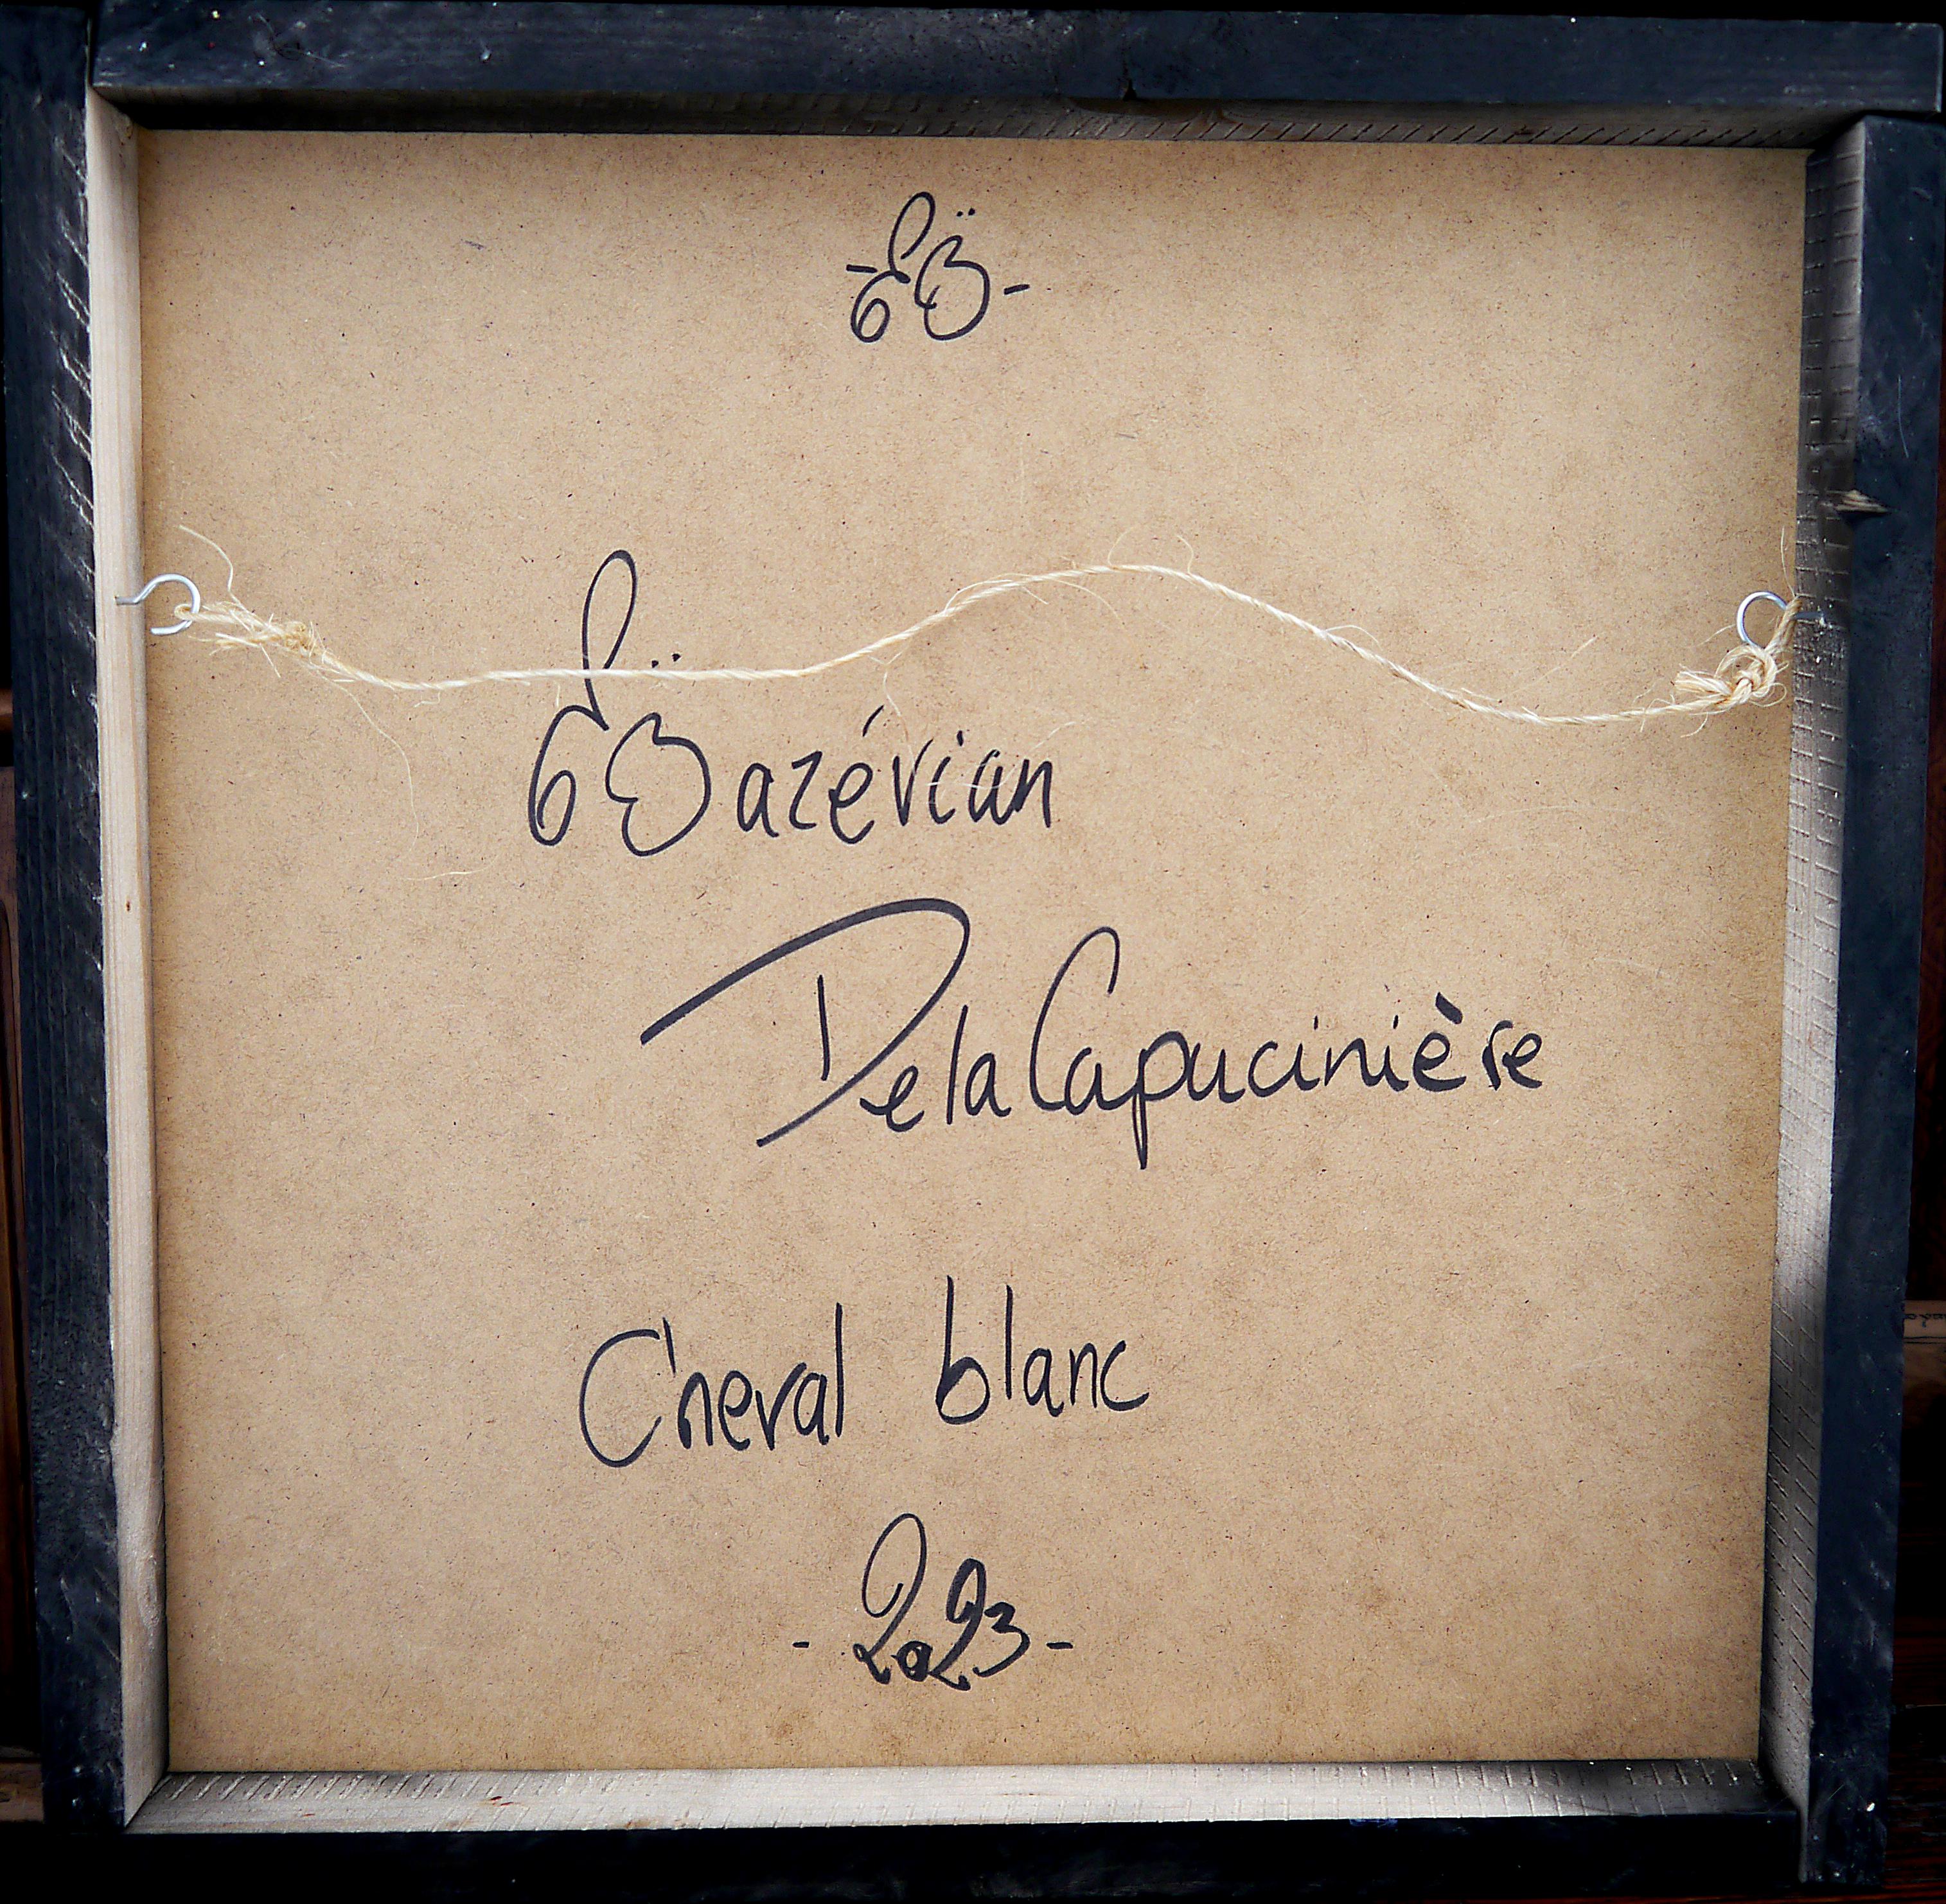 Bazévian
De la Capucinière
Cheval blanc
- 2023 -